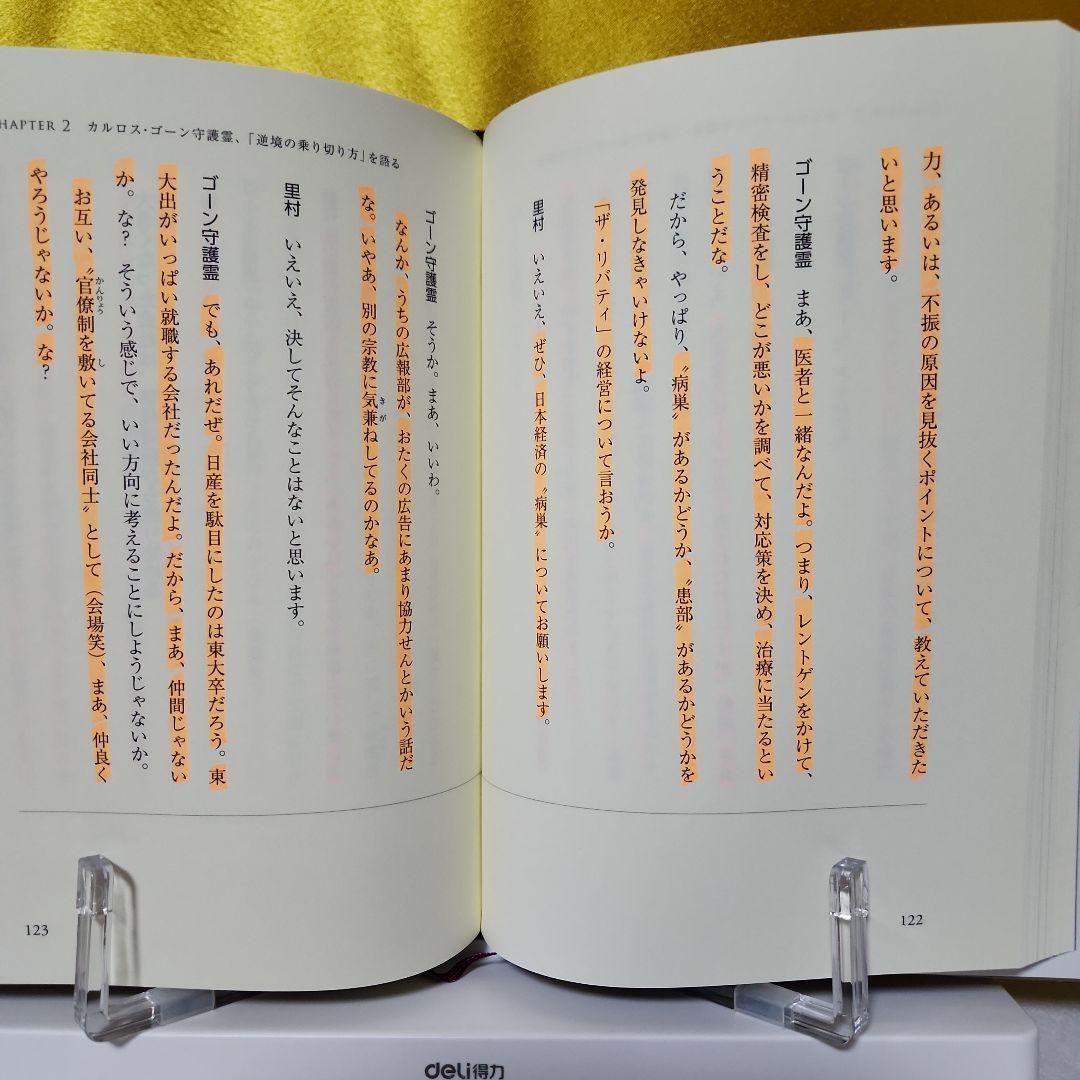 力、あるいは、不振の原因を見抜くポイントについて、教えていただきた
いと思います。
ゴーン守護霊　まあ、医者と一緒なんだよ。つまり、レントゲンをかけて、
精密検査をし、どこが悪いかを調べて、対応策を決め、治療に当たるとい
うことだな。
だから、やっぱり、〝病巣〟があるかどうか、〝患部〟があるかどうかを
発見しなきゃいけないよ。
「ザ・リバティ」の経営について言おうか。
里村　いえいえ、ぜひ、日本経済の〝病巣〟についてお願いします。
122
CHAPTER 2　カルロス・ゴーン守護霊、「逆境の乗り切り方」を語る
ゴーン守護霊　そうか。まあ、いいわ。
なんか、うちの広報部が、おたくの広告にあまり協力せんとかいう話だ
な。いやあ、別の宗教に気兼ねしてるのかなあ。
きが
里村　いえいえ、決してそんなことはないと思います。
ゴーン守護霊　でも、あれだぜ。日産を駄目にしたのは東大卒だろう。東
大出がいっぱい就職する会社だったんだよ。だから、まあ、仲間じゃない
か。な？　そういう感じで、いい方向に考えることにしようじゃないか。
お互い、〝官僚制を敷いてる会社同士〟として（会場笑）、まあ、仲良く
かんりょう
し
やろうじゃないか。な？
123
deli得力